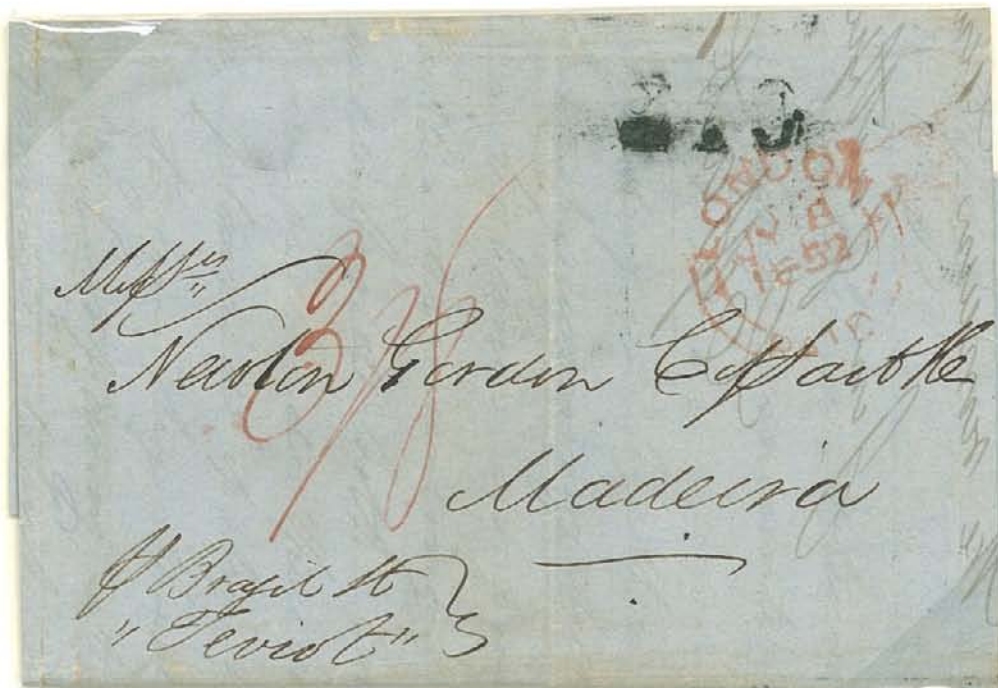 LONDON
1852
Messrs
3/8
Newton Gordon Cossart & Co
Madeira
p Brazil St
"Teviot"